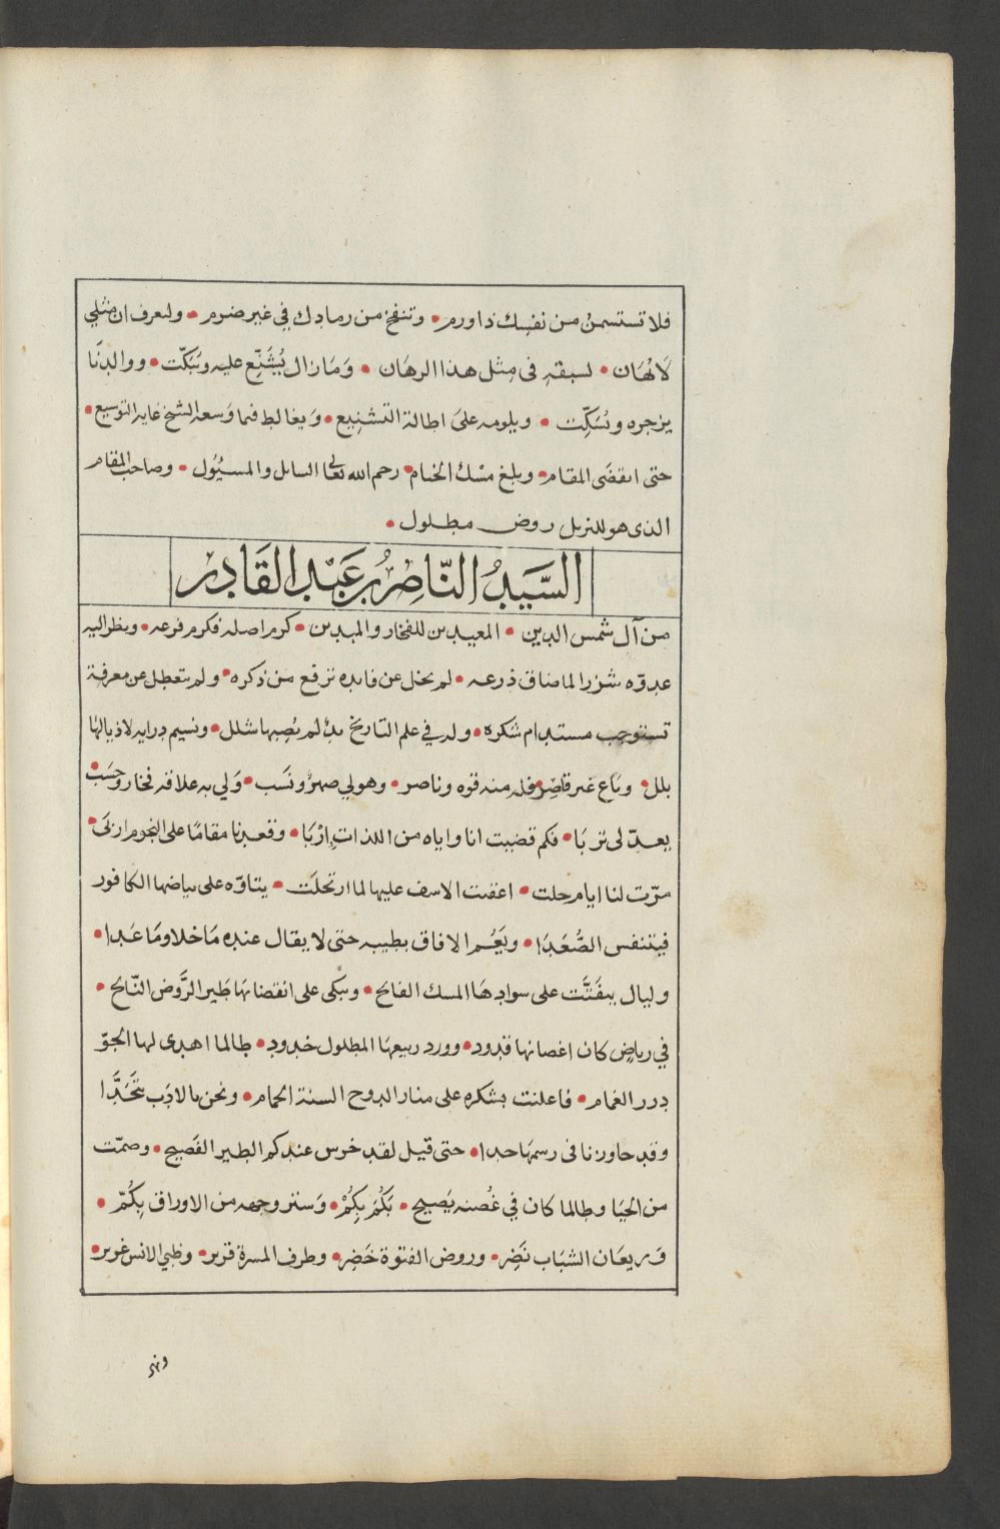 فلا تستسمن من نفسك ذا ورم • وتنفخ من رمادك في غير ضرم • ولتعرف ان مثلي
لا يُهَان • لسبقه فى مثل هذا الرهَان • وَمَا زال يُشَنِّع عليه ويَبَكّت • ووالدنَا
يزجره ويُسَكِّت • ويلومه علىَ اطالة التشنِيع • وَيغالط فيما وَسعه الشيخ غاية التوسيع •
حتى انقضَى المقام • وبلغ مسْك الختام • رحم الله تعالى السائل والمسئُول • وصاحب المقام
الذى هو للنزيل روض مطلول •
السَّيِّدُ النَّاصِرُ بن عَبْد القَادِر
من آل شمس الدين • المعيدين للفخار والمبدين • كرم اصله فكرم فرعه • ونظر اليه
عدوّه شزرا لما ضاق ذرعه • لم يخل عن فائدة ترفع من ذكره • ولم يتعطل عن معرفة
تستوجب مستدام شكره • وله في علم التاريخ يدٌ لم يُصِبها شلل • ونسيم دراية لاذيالها
بلل • وبَاع غير قاصِر • فله منه قوه وناصر • وهو لي صهرٌ ونَسَب • وَلي به علاقه فخار وحَسَبْ •
يعدّ لى تربَا • فكم قضيت انا واياه من اللذات اِرْبَا • وقعدنا مقامًا على النجوم اربَىَ •
مرّت لنا ايام حلت • اعقبت الاسف عليها لما ارتحلَت • يتاوّه على بياضها الكافور
فيتنفس الصُّعَدَا • ويَعُم الافاق بطيبه حتى لا يقال عنده مَا خلا ومَا عَدا •
وليال يتفَتَّت على سوادهَا المسك الفايح • ويبكى على انقضائهَا طَير الرَّوض النّايح •
في رياضٍ كان اغصانها قدود • وورد ربيعهَا المطلول خدود • طالما اهدى لها الجوّ
درر الغمام • فاعلنت بشكره على منار الدوح السنة الحمام • ونحن بالادَب نَتَحَدَّا
وقد جاوزنا فى رسمهَا حدا • حتى قيل لقد خرس عندكم الطير الفَصيح • وصمّت
من الحيَا وطالما كان في غُصنه يَصيح • بَكُمَ بِكُمْ • وَستر وجهه من الاوراق بِكُمّ •
وريعَان الشبَاب نَضِر • وروض الفتوة خَضِر • وطرف المسرة قرير • وظبي الانس غرير •